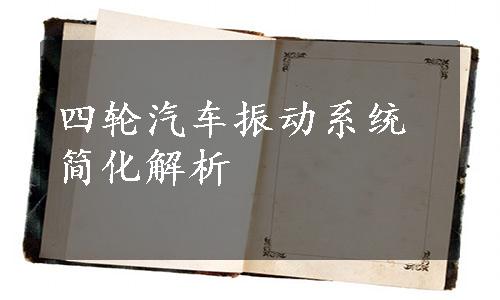 四轮汽车振动系统
简化解析